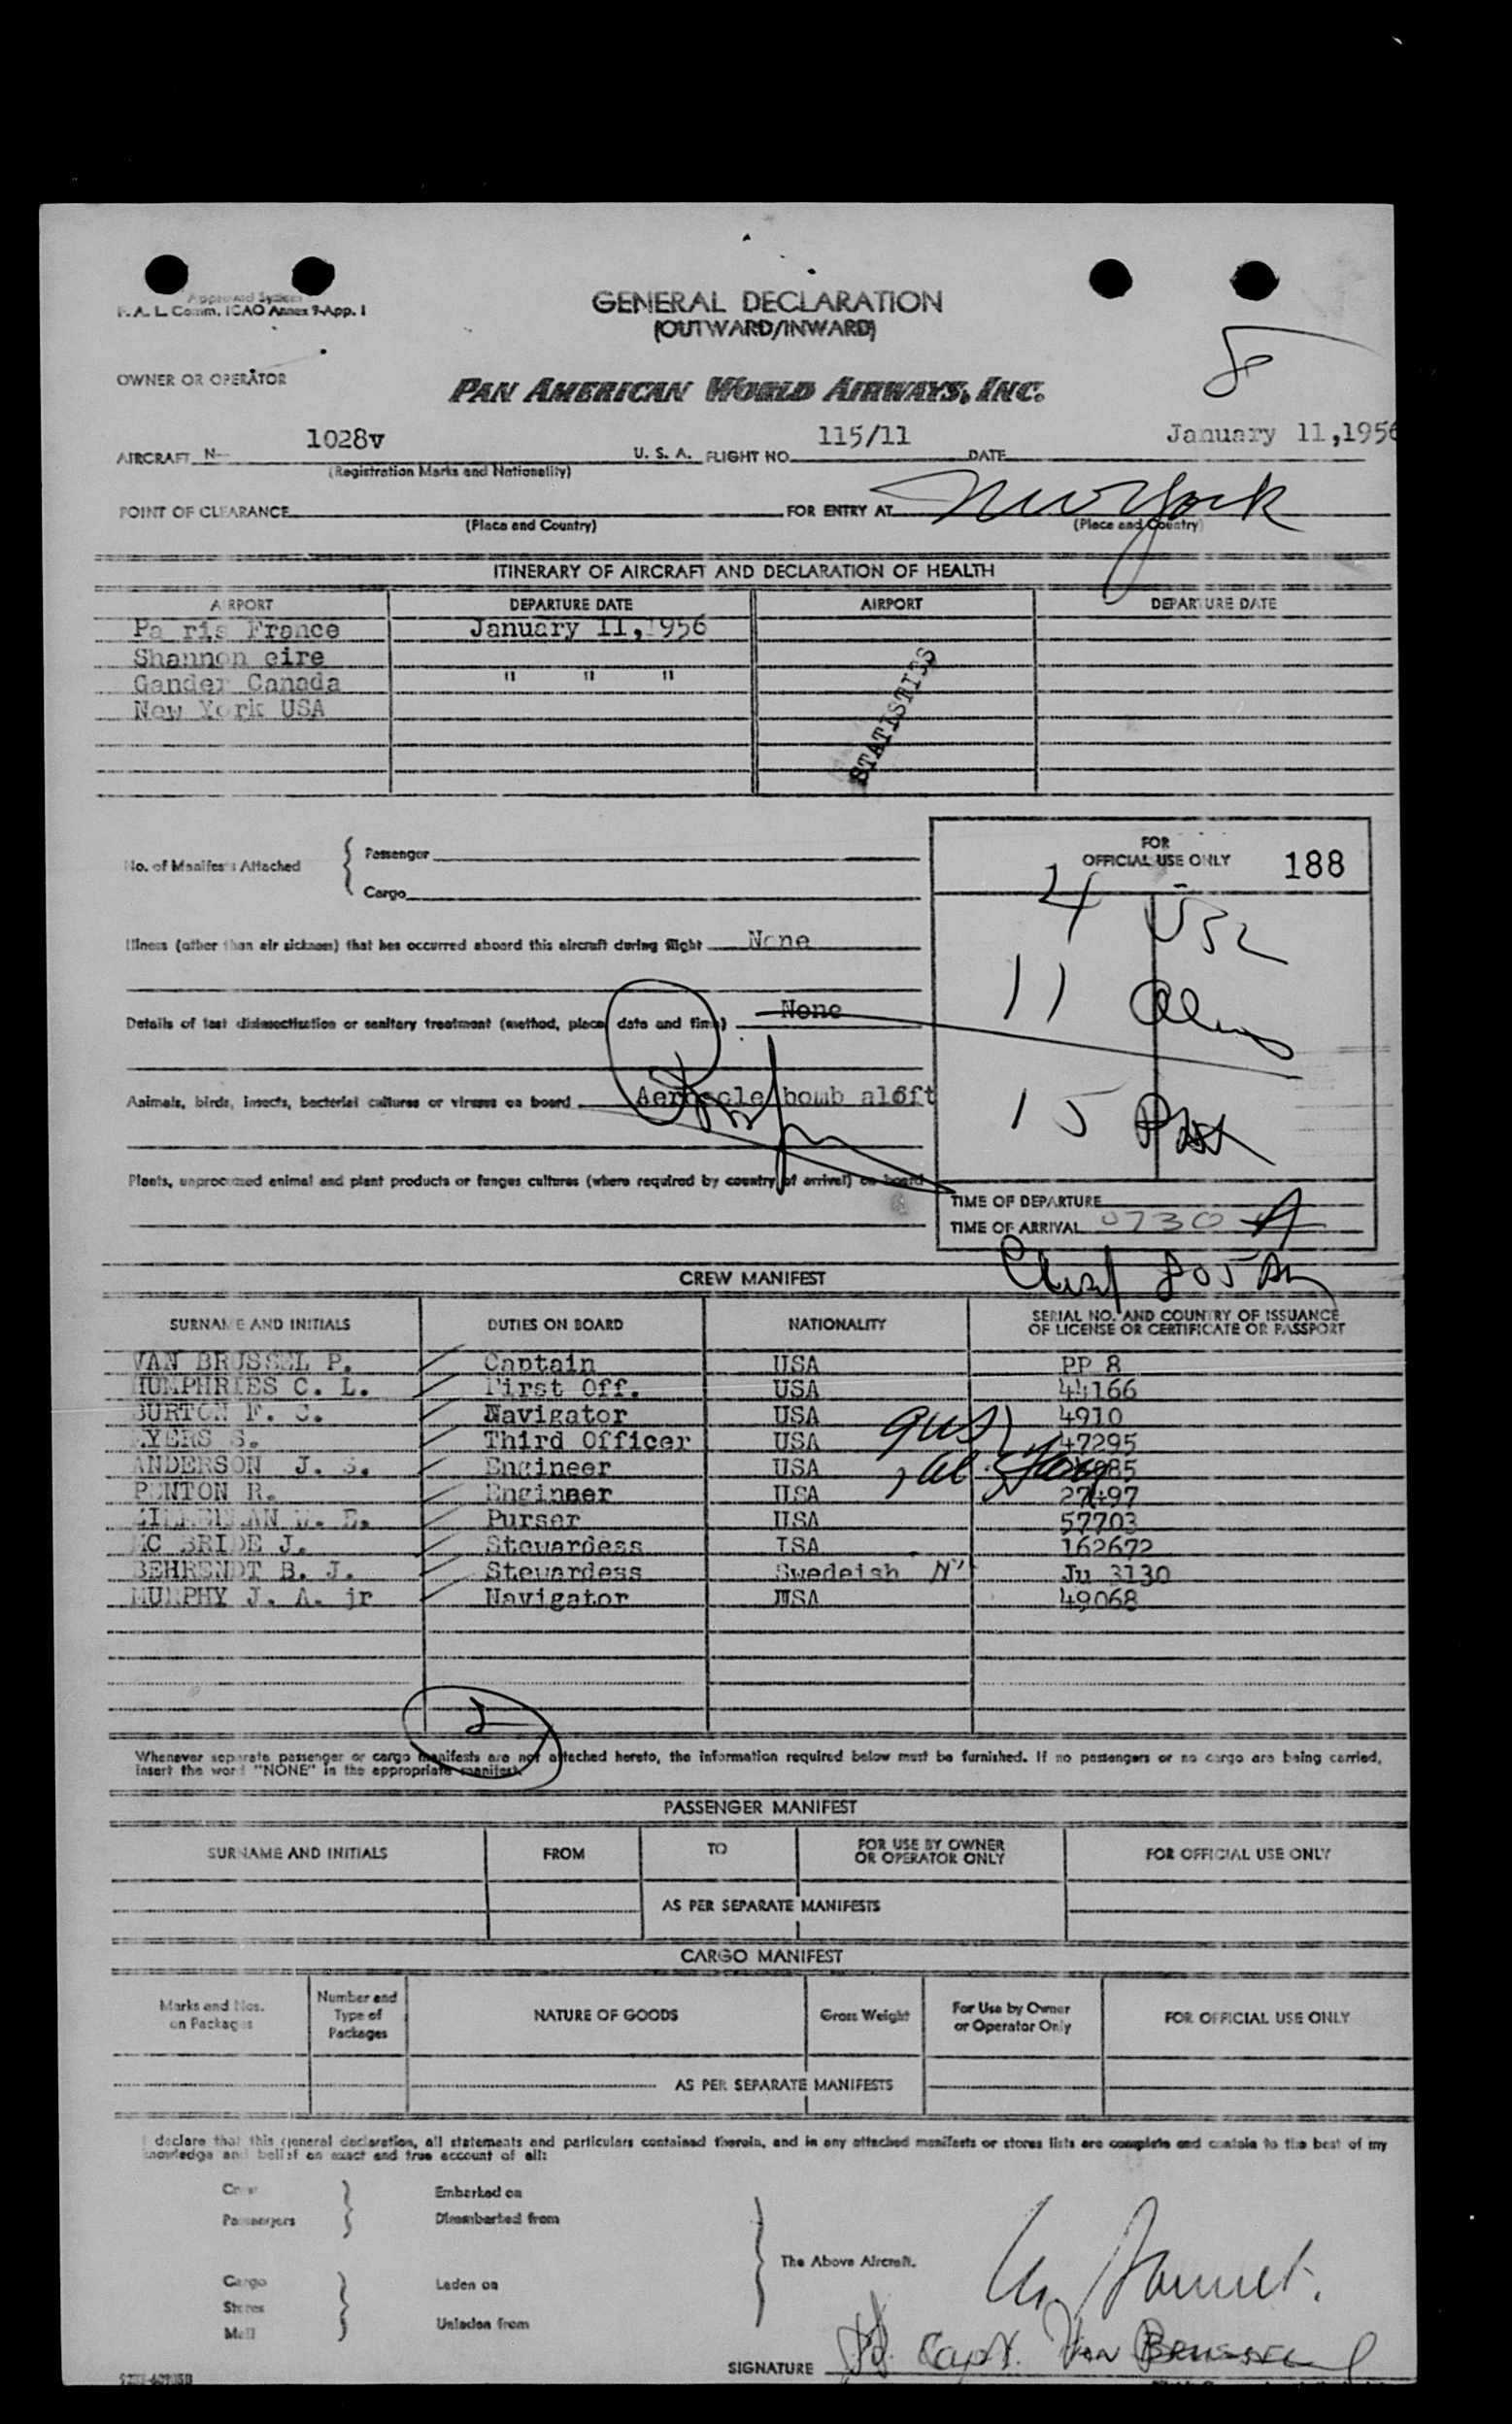 Approved System
F. A. L. Comm. ICAO Annex 9-App. 1
GENERAL DECLARATION
(OUTWARD/INWARD)
8
OWNER OR OPERATOR
PAN AMERICAN WORLD AIRWAYS, INC.
AIRCRAFT N- 1028v U. S. A. FLIGHT NO. 115/11 DATE January 11,1956
(Registration Marks and Nationality)
POINT OF CLEARANCE FOR ENTRY AT New York
(Place and Country) (Place and Country)
ITINERARY OF AIRCRAFT AND DECLARATION OF HEALTH
AIRPORT DEPARTURE DATE AIRPORT DEPARTURE DATE
Pa ris France January 11,1956
Shannon eire
Gander Canada " " "
New York USA
STATISTICS
FOR
OFFICIAL USE ONLY 188
No. of Manifests Attached { Passenger
Cargo
4 USC
Illness (other than air sickness) that has occurred aboard this aircraft during flight None
11 Aliens
Details of last disinsectization or sanitary treatment (method, place, date and time) None
Animals, birds, insects, bacterial cultures or viruses on board Aerosole bomb aloft
15 Pax
Plants, unprocessed animal and plant products or fungus cultures (where required by country of arrival) on board
TIME OF DEPARTURE
TIME OF ARRIVAL 0730 A
805 Am
CREW MANIFEST
SURNAME AND INITIALS DUTIES ON BOARD NATIONALITY SERIAL NO. AND COUNTRY OF ISSUANCE
OF LICENSE OR CERTIFICATE OR PASSPORT
VAN BRUSSEL P. Captain USA PP 8
HUMPHRIES C. L. First Off. USA 44166
BURTON F. C. Navigator USA 4910
AYERS S. Third Officer USA 47295
ANDERSON J. S. Engineer USA
PENTON R. Engineer USA 27497
Purser USA 57703
MC BRIDE J. Stewardess USA 162672
BEHRENDT B. J. Stewardess Swedeish Ju 3130
MURPHY J. A. jr Navigator USA 49068
2
Whenever separate passenger or cargo manifests are not attached hereto, the information required below must be furnished. If no passengers or no cargo are being carried,
insert the word "NONE" in the appropriate manifest.
PASSENGER MANIFEST
SURNAME AND INITIALS FROM TO FOR USE BY OWNER
OR OPERATOR ONLY FOR OFFICIAL USE ONLY
AS PER SEPARATE MANIFESTS
CARGO MANIFEST
Marks and Nos.
on Packages Number and
Type of
Packages NATURE OF GOODS Gross Weight For Use by Owner
or Operator Only FOR OFFICIAL USE ONLY
AS PER SEPARATE MANIFESTS
I declare that this general declaration, all statements and particulars contained therein, and in any attached manifests or stores lists are complete and contain to the best of my
knowledge and belief an exact and true account of all:
Crew Embarked on
Passengers Disembarked from
The Above Aircraft.
Cargo Laden on
Stores
Mail Unladen from
SIGNATURE Capt. VAN BRUSSEL